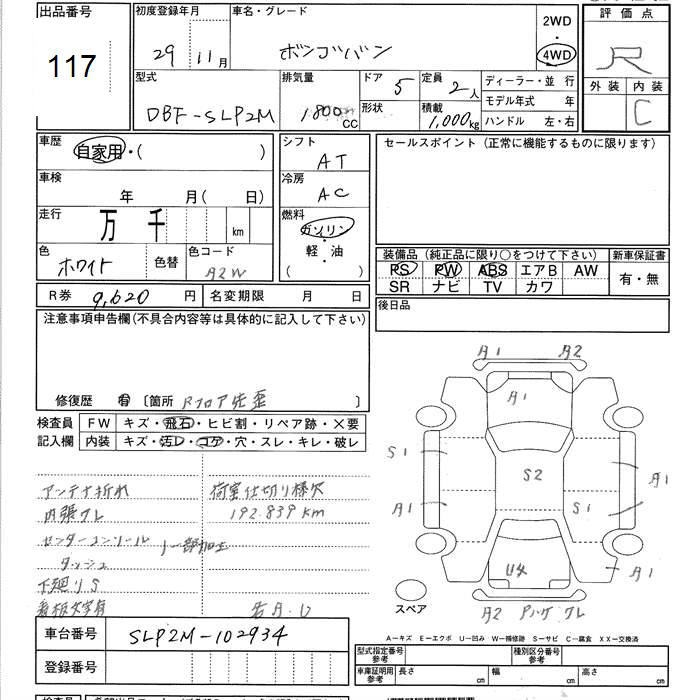 出品番号
117
初度登録年月
29年11月
車名・グレード
ボンゴバン
2WD
・
4WD
評価点
R
外装 内装
C
型式
DBF-SLP2M
排気量
1800cc
ドア
5
形状
定員
2人
積載
1,000kg
ディーラー・並行
モデル年式 年
ハンドル 左・右
車歴
自家用・( )
車検
年 月( 日)
走行
万 千 km
色
ホワイト
色替
色コード
A2W
シフト
AT
冷房
AC
燃料
ガソリン
・
軽・油
( )
セールスポイント (正常に機能するものに限ります)
装備品 (純正品に限り○をつけて下さい)
新車保証書
PS PW ABS エアB AW
SR ナビ TV カワ
有・無
R券 9,620円
名変期限 月 日
後日品
注意事項申告欄(不具合内容等は具体的に記入して下さい)
修復歴 有 〔箇所 Rフロア先歪 〕
検査員
記入欄
FW キズ・飛石・ヒビ割・リペア跡・×要
内装 キズ・汚レ・コゲ・穴・スレ・キレ・破レ
アンテナ折れ
荷室仕切り様欠
内張ワレ
192.839km
センターコンソール
ダッシュ
一部加工
下廻りS
看板文字有
若A.U
A1 A2
A1
S1
A1
S2
A1
S1
A1
U4
A2
ワレ
スペア
A－キズ E－エクボ U－凹み W－補修跡 S－サビ C－腐食 XX－交換済
車台番号
SLP2M-102934
登録番号
型式指定番号
参考
種別区分番号
参考
車庫証明用
参考
長さ cm
幅 cm
高さ cm